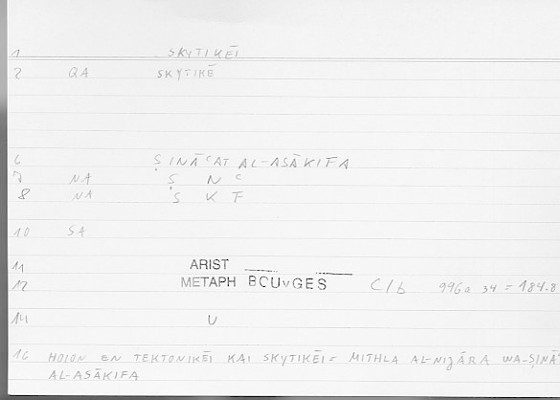 1 SKYTIKĒI
2 QA SKYTIKĒ
6 ṢINĀʿAT AL-ASĀKIFA
7 NA Ṣ N ʿ
8 NA Ṣ K F
10 SA
11 ARIST
12 METAPH BOUYGES C/b 996a 34 = 184.8
14 U
16 HOION EN TEKTONIKĒI KAI SKYTIKĒI = MITHLA AL-NIǦĀRA WA-ṢINĀ
AL-ASĀKIFA